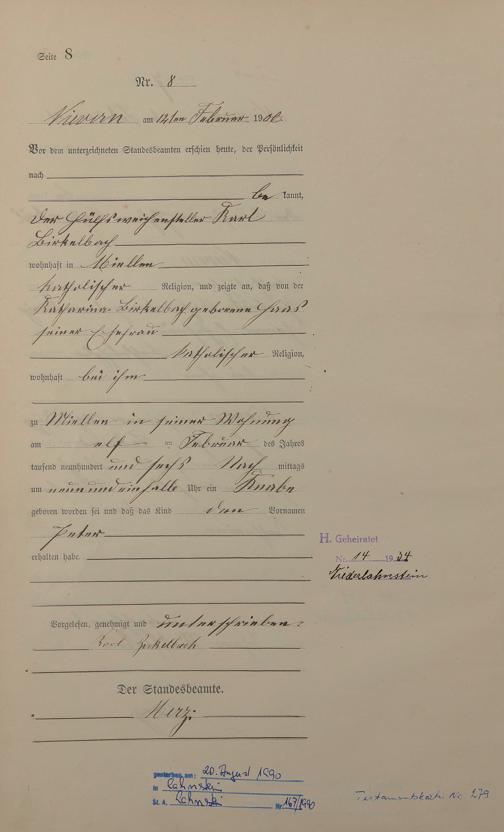 Seite 8
Nr. 8
Nievern am 12ten Februar 1906
Vor dem unterzeichneten Standesbeamten erschien heute, der Persönlichkeit
nach
be kannt,
der Hülfsweichensteller Karl
Birkelbach
wohnhaft in Miellen
katholischer Religion, und zeigte an, daß von der
Katharina Birkelbach geborene Haas
seiner Ehefrau
katholischer Religion,
wohnhaft bei ihm
zu Miellen in seiner Wohnung
am elf ten Februar des Jahres
tausend neunhundert und sechs Nach mittags
um neunundeinhalb Uhr ein Knabe
geboren worden sei und daß das Kind den Vornamen
Peter
erhalten habe.
H. Geheiratet
Nr. 14 1934
Niederlahnstein
Vorgelesen, genehmigt und unterschrieben:
Karl Birkelbach
Der Standesbeamte.
Merz
gestorben am: 20. August 1990
in Lahnstein
St. A. Lahnstein Nr. 167/1990
Nr. 279